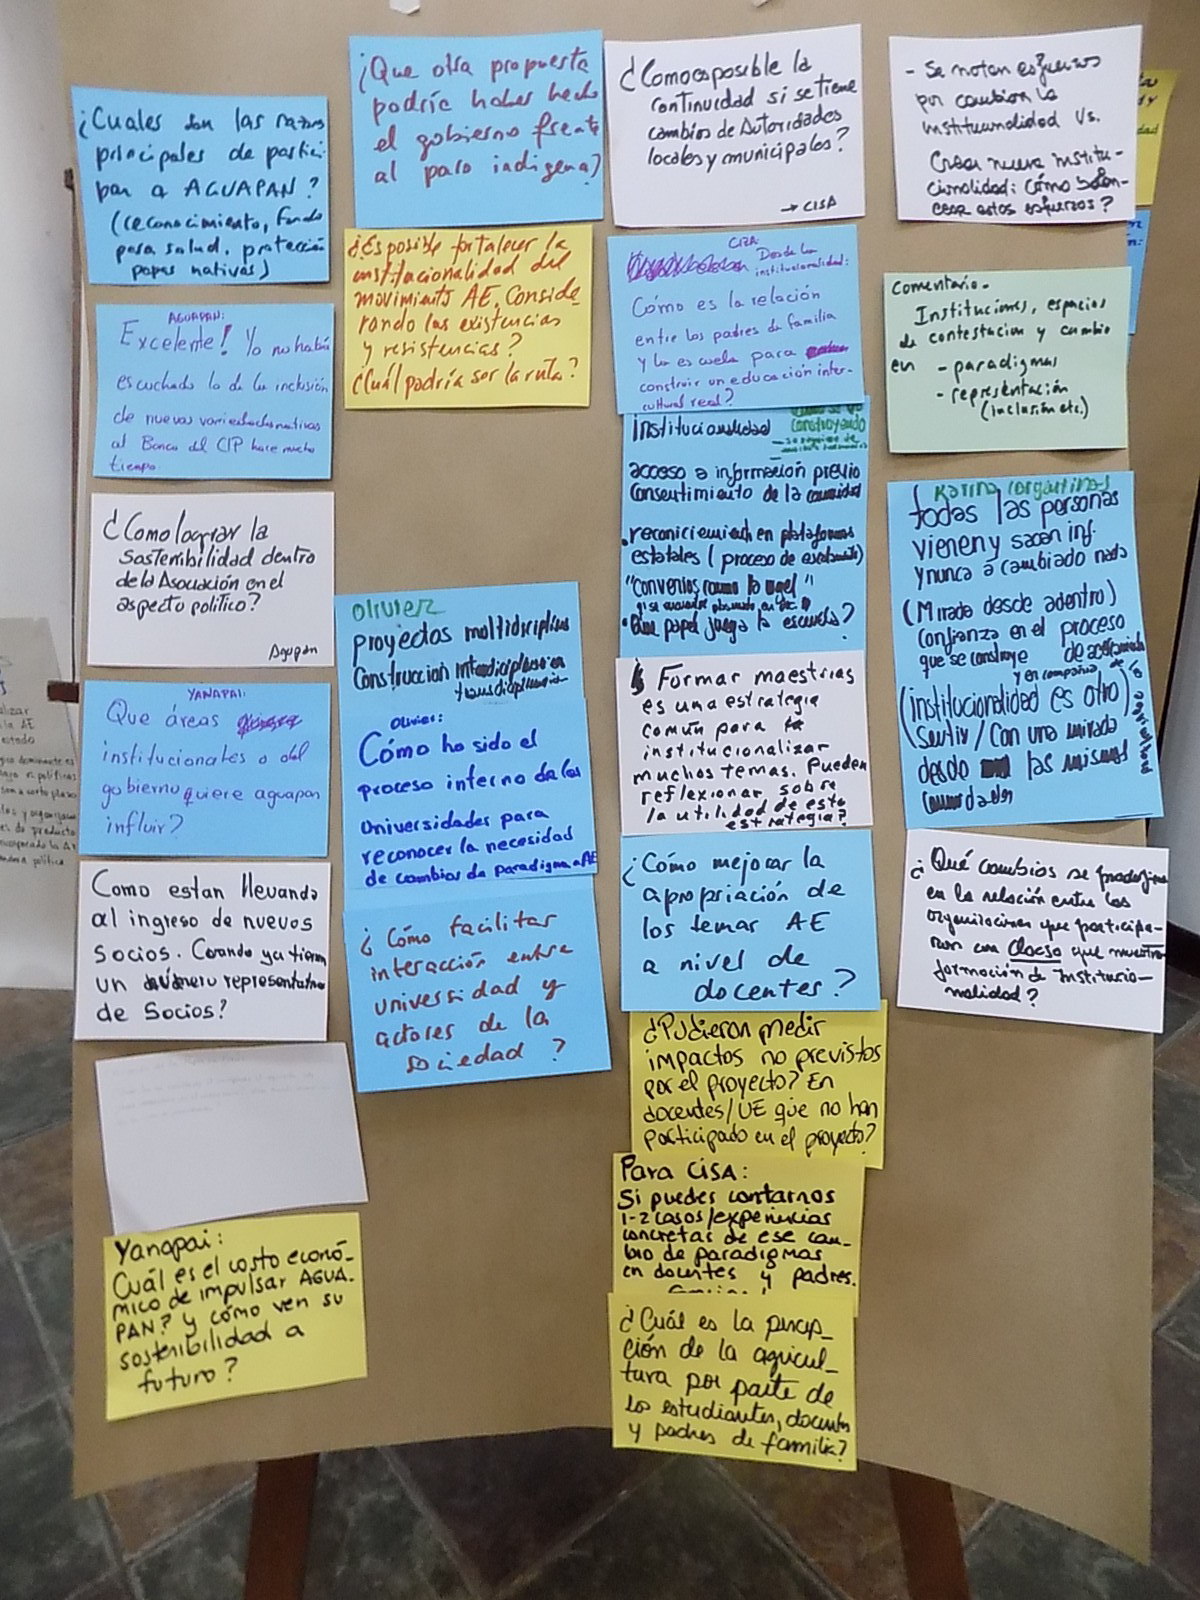 ¿Cuales son las
principales de partici-
par a AGUAPAN?
(reconocimiento, Fondo
para salud, protección
papas nativas)
AGUAPAN:
Excelente! Yo no había
escuchado lo de la inclusión
de nuevas variedades nativas
al Banco del CIP hace mucho
tiempo
¿Como lograr la
sostenibilidad dentro
de la Asociación en el
aspecto politico?
Aguapan
YANAPAI:
Que áreas
institucionales o del
gobierno quiere aguapan
influir?
Como estan llevando
al ingreso de nuevos
socios. Cuando ya tienen
un número representativo
de Socios?
Yanapai:
Cuál es el costo econó-
mico de impulsar AGUA-
PAN? y cómo ven su
sostenibilidad a
futuro?
¿Que otra propuesta
podría haber hecho
el gobierno frente
al paro indigena?
¿Es posible fortalecer la
institucionalidad del
movimiento AE, Conside
rando las existencias
y resistencias?
¿Cuál podría ser la ruta?
Olivier
proyectos multidiciplina
Construccion
Olivier:
Cómo ha sido el
proceso interno de las
Universidades para
reconocer la necesidad
de cambios de paradigma a AE
¿Cómo facilitar
interacción entre
universidad y
actores de la
sociedad?
¿Como es posible la
continuidad si se tiene
cambios de Autoridades
locales y municipales?
→ CISA
Desde la
institucionalidad:
Cómo es la relación
entre los padres de familia
y la escuela para
construir un educación inter-
cultural real?
Institucionalidad
construyendo
acceso a información previo
Consentimiento de la comunidad
• reconiciemiento en plataformas
estatales (proceso de
"Convenios como la ugel"
• Que papel juega la escuela?
Formar maestrias
es una estrategia
común para
institucionalizar
muchos temas. Pueden
reflexionar sobre
la utilidad de esta
estrategia?
¿Cómo mejorar la
apropiación de
los temas AE
a nivel de
docentes?
¿Pudieron medir
impactos no previstos
por el proyecto? En
docentes/UE que no han
participado en el proyecto?
Para CISA:
Si puedes contarnos
1-2 casos/experiencias
concretas de ese cam-
bio de paradigmas
en docentes y padres.
¿Cuál es la percep-
ción de la agricul-
tura por parte de
los estudiantes, docentes
y padres de familia?
- Se notan esfuerzos
por cambiar la
institucionalidad Vs.
Crear nueva institu-
cionalidad: Cómo balan-
cear estos esfuerzos?
Comentario.
Instituciones, espacios
de contestacion y cambio
en - paradigmas
- representación
(inclusión etc.)
Karina (argentinas)
todas las personas
vienen y sacan inf.
y nunca a cambiado nada
(Mirada desde adentro)
Confianza en el proceso
que se construye
y en compañia de
(institucionalidad es otro)
Sentir / Con una mirada
desde las mismas
Comunidades
¿Qué cambios se produjeron
en la relación entre las
organizaciones que participa-
ron
formación de Institucio-
nalidad?